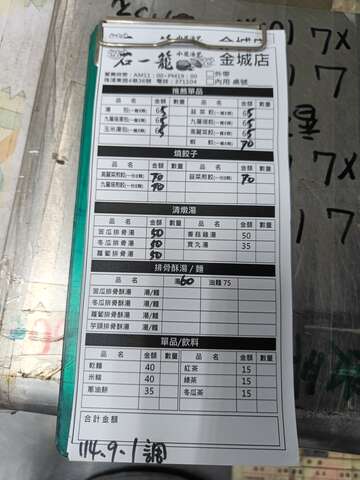 君一籠 小籠湯包 金城店
營業時間：AM11：00-PM19：00 □外帶
珠浦東路4巷38號 電話：371504 □內用 桌號
推薦單品
品 名 金額 數量 品 名 金額 數量
湯 包(一籠8顆) 65 韭菜 65
九層塔 65 九層塔 65
玉米 65 65
蝦 餃 70
燒餃子
品 名 金額 數量 品 名 金額 數量
高麗菜煎餃 70 韭菜煎餃 70
九層塔煎餃 70
清燉湯
品 名 金額 數量 品 名 金額 數量
苦瓜排骨湯 50 香菇雞湯 50
冬瓜排骨湯 50 貢丸湯 35
蘿蔔排骨湯 50
排骨酥湯/麵
品 名 湯60 油麵75
苦瓜排骨酥湯 湯/麵
冬瓜排骨酥湯 湯/麵
蘿蔔排骨酥湯 湯/麵
芋頭排骨酥湯 湯/麵
單品/飲料
品 名 金額 數量 品 名 金額 數量
乾麵 40 紅茶 15
米糕 40 綠茶 15
蔥油餅 35 冬瓜茶 15
合計金額
114.9.1調